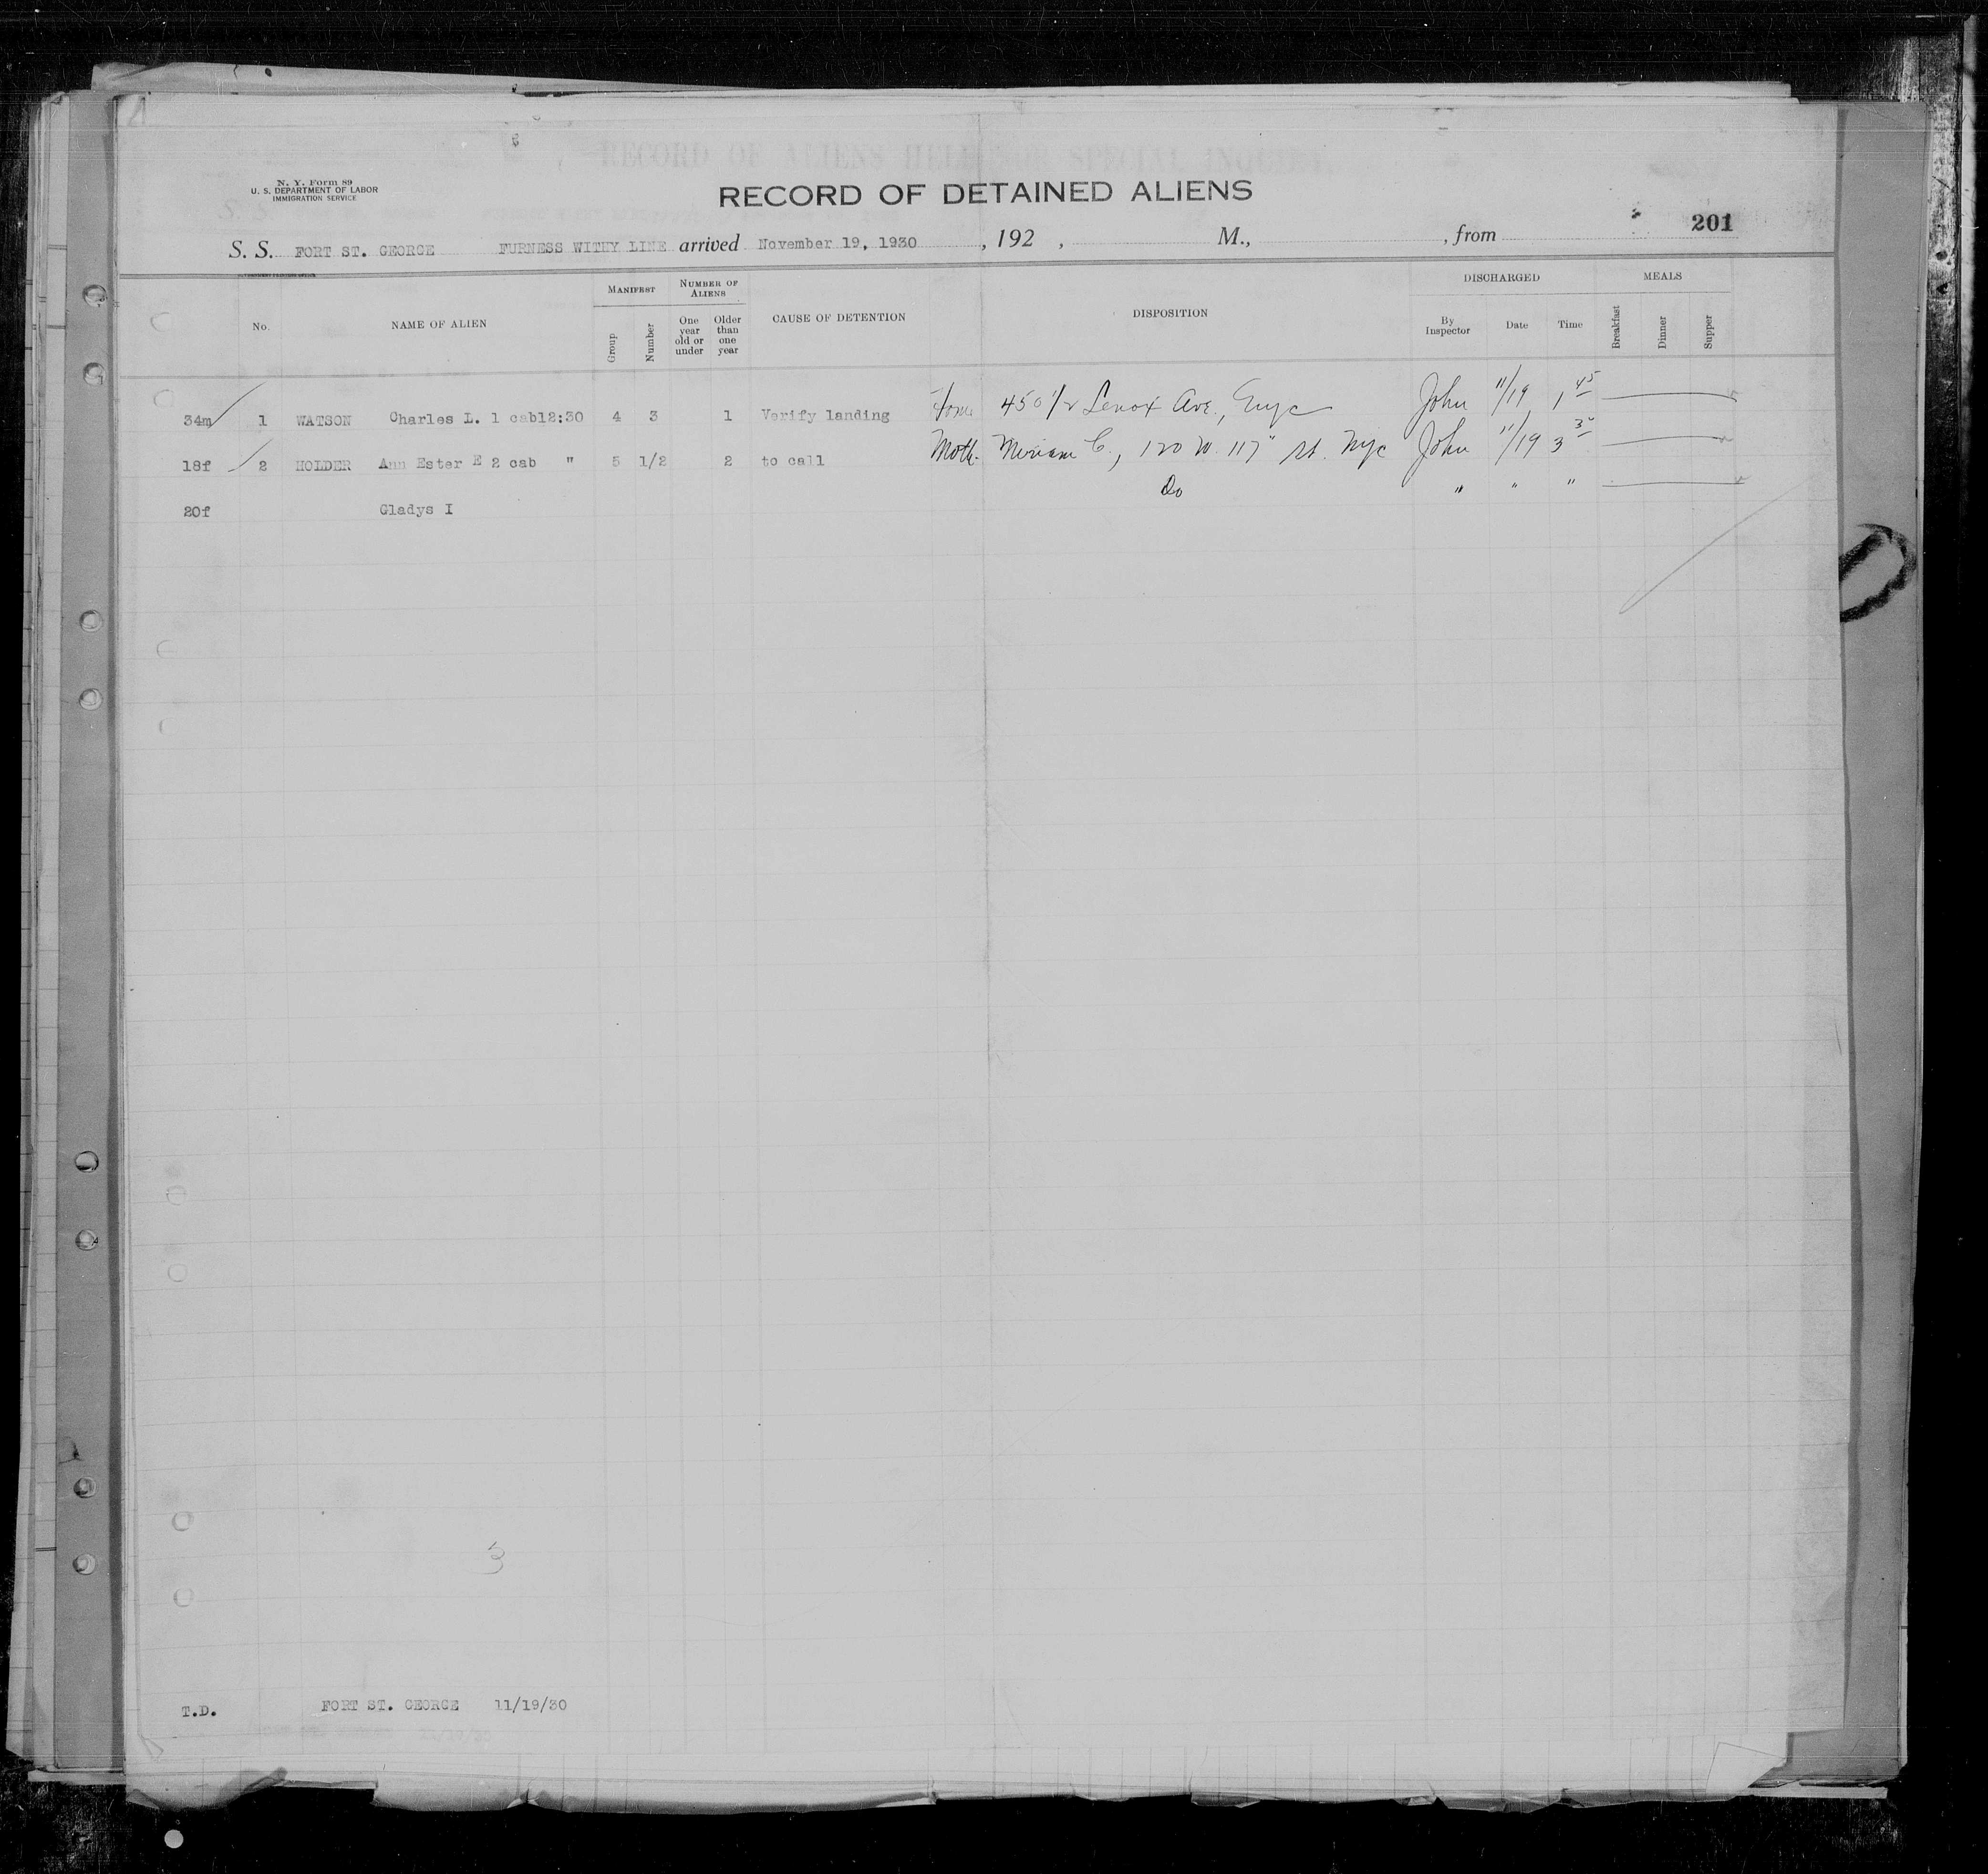 RECORD OF ALIENS HELD FOR SPECIAL INQUIRY
N. Y. Form 89
U. S. DEPARTMENT OF LABOR
IMMIGRATION SERVICE
RECORD OF DETAINED ALIENS
201
S. S. FORT ST. GEORGE FURNESS WITHY LINE arrived November 19, 1930, 192 , M., , from
GOVERNMENT PRINTING OFFICE
No.
NAME OF ALIEN
MANIFEST
Group
Number
NUMBER OF ALIENS
One year old or under
Older than one year
CAUSE OF DETENTION
DISPOSITION
DISCHARGED
By Inspector
Date
Time
MEALS
Breakfast
Dinner
Supper
34m 1 WATSON Charles L. 1 cab12:30 4 3 1 Verify landing 450 1/2 Lenox Ave., John 11/19 1 45
18f 2 HOLDER Ann Ester E 2 cab " 5 1/2 2 to call Moth. Miriam C., 120 W. 117" St. Nyc John 11/19 3 30
Do " " "
20f Gladys I
3
T.D. FORT ST. GEORGE 11/19/30